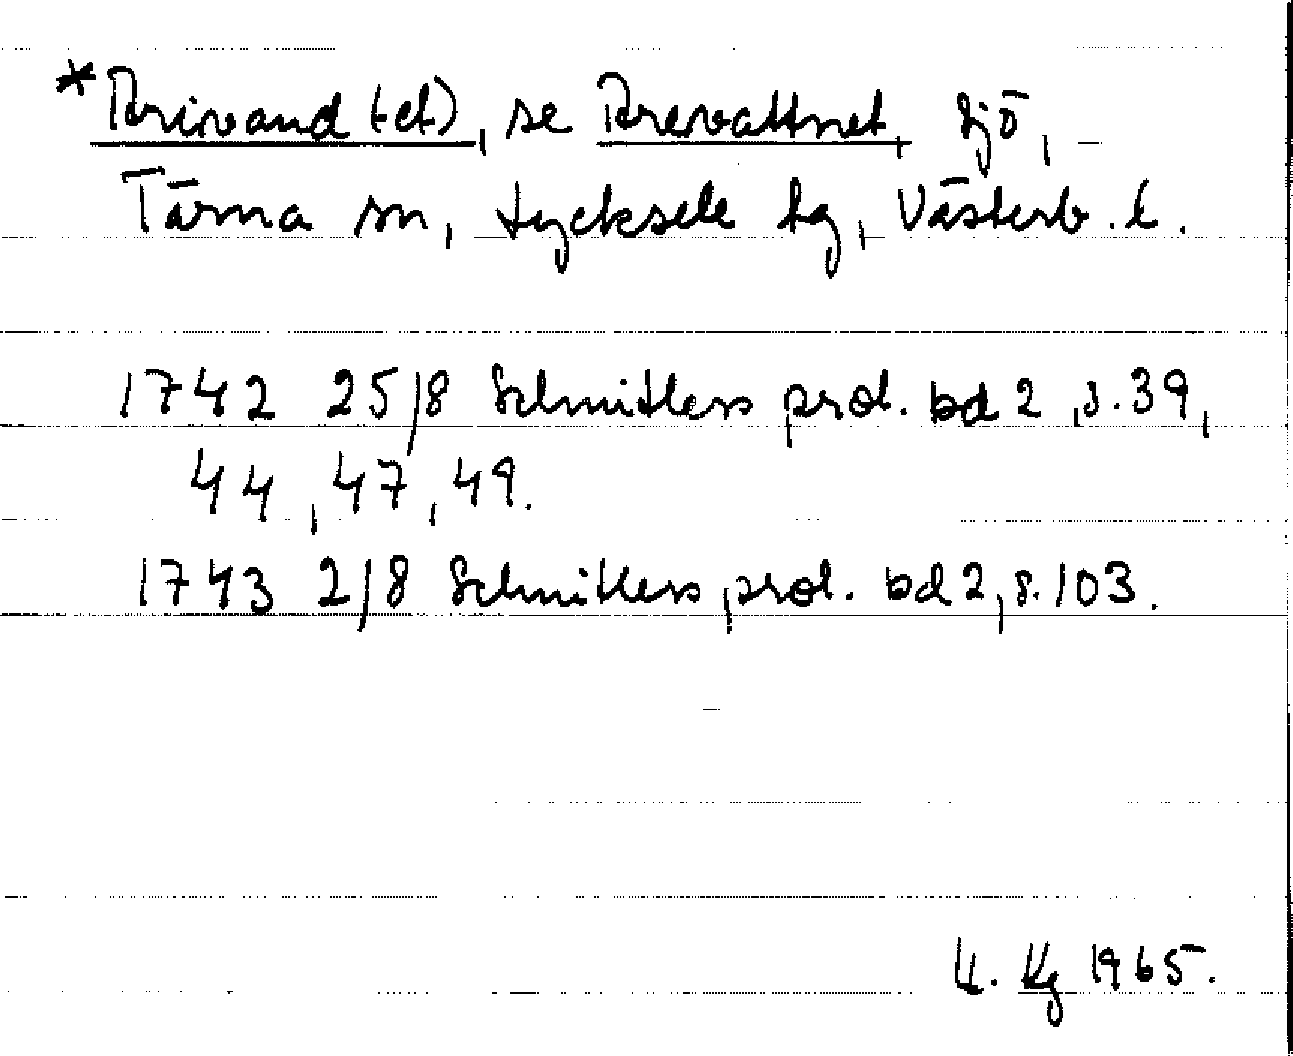 *Brivand (et), se Brevattnet, sjö,
Tärna sn, Lycksele lg, Västerb. l.
1742 25/8 Schnitlers prot. bd 2, s. 39,
44, 47, 49.
1743 2/8 Schnitlers prot. bd 2, s. 103.
1965.